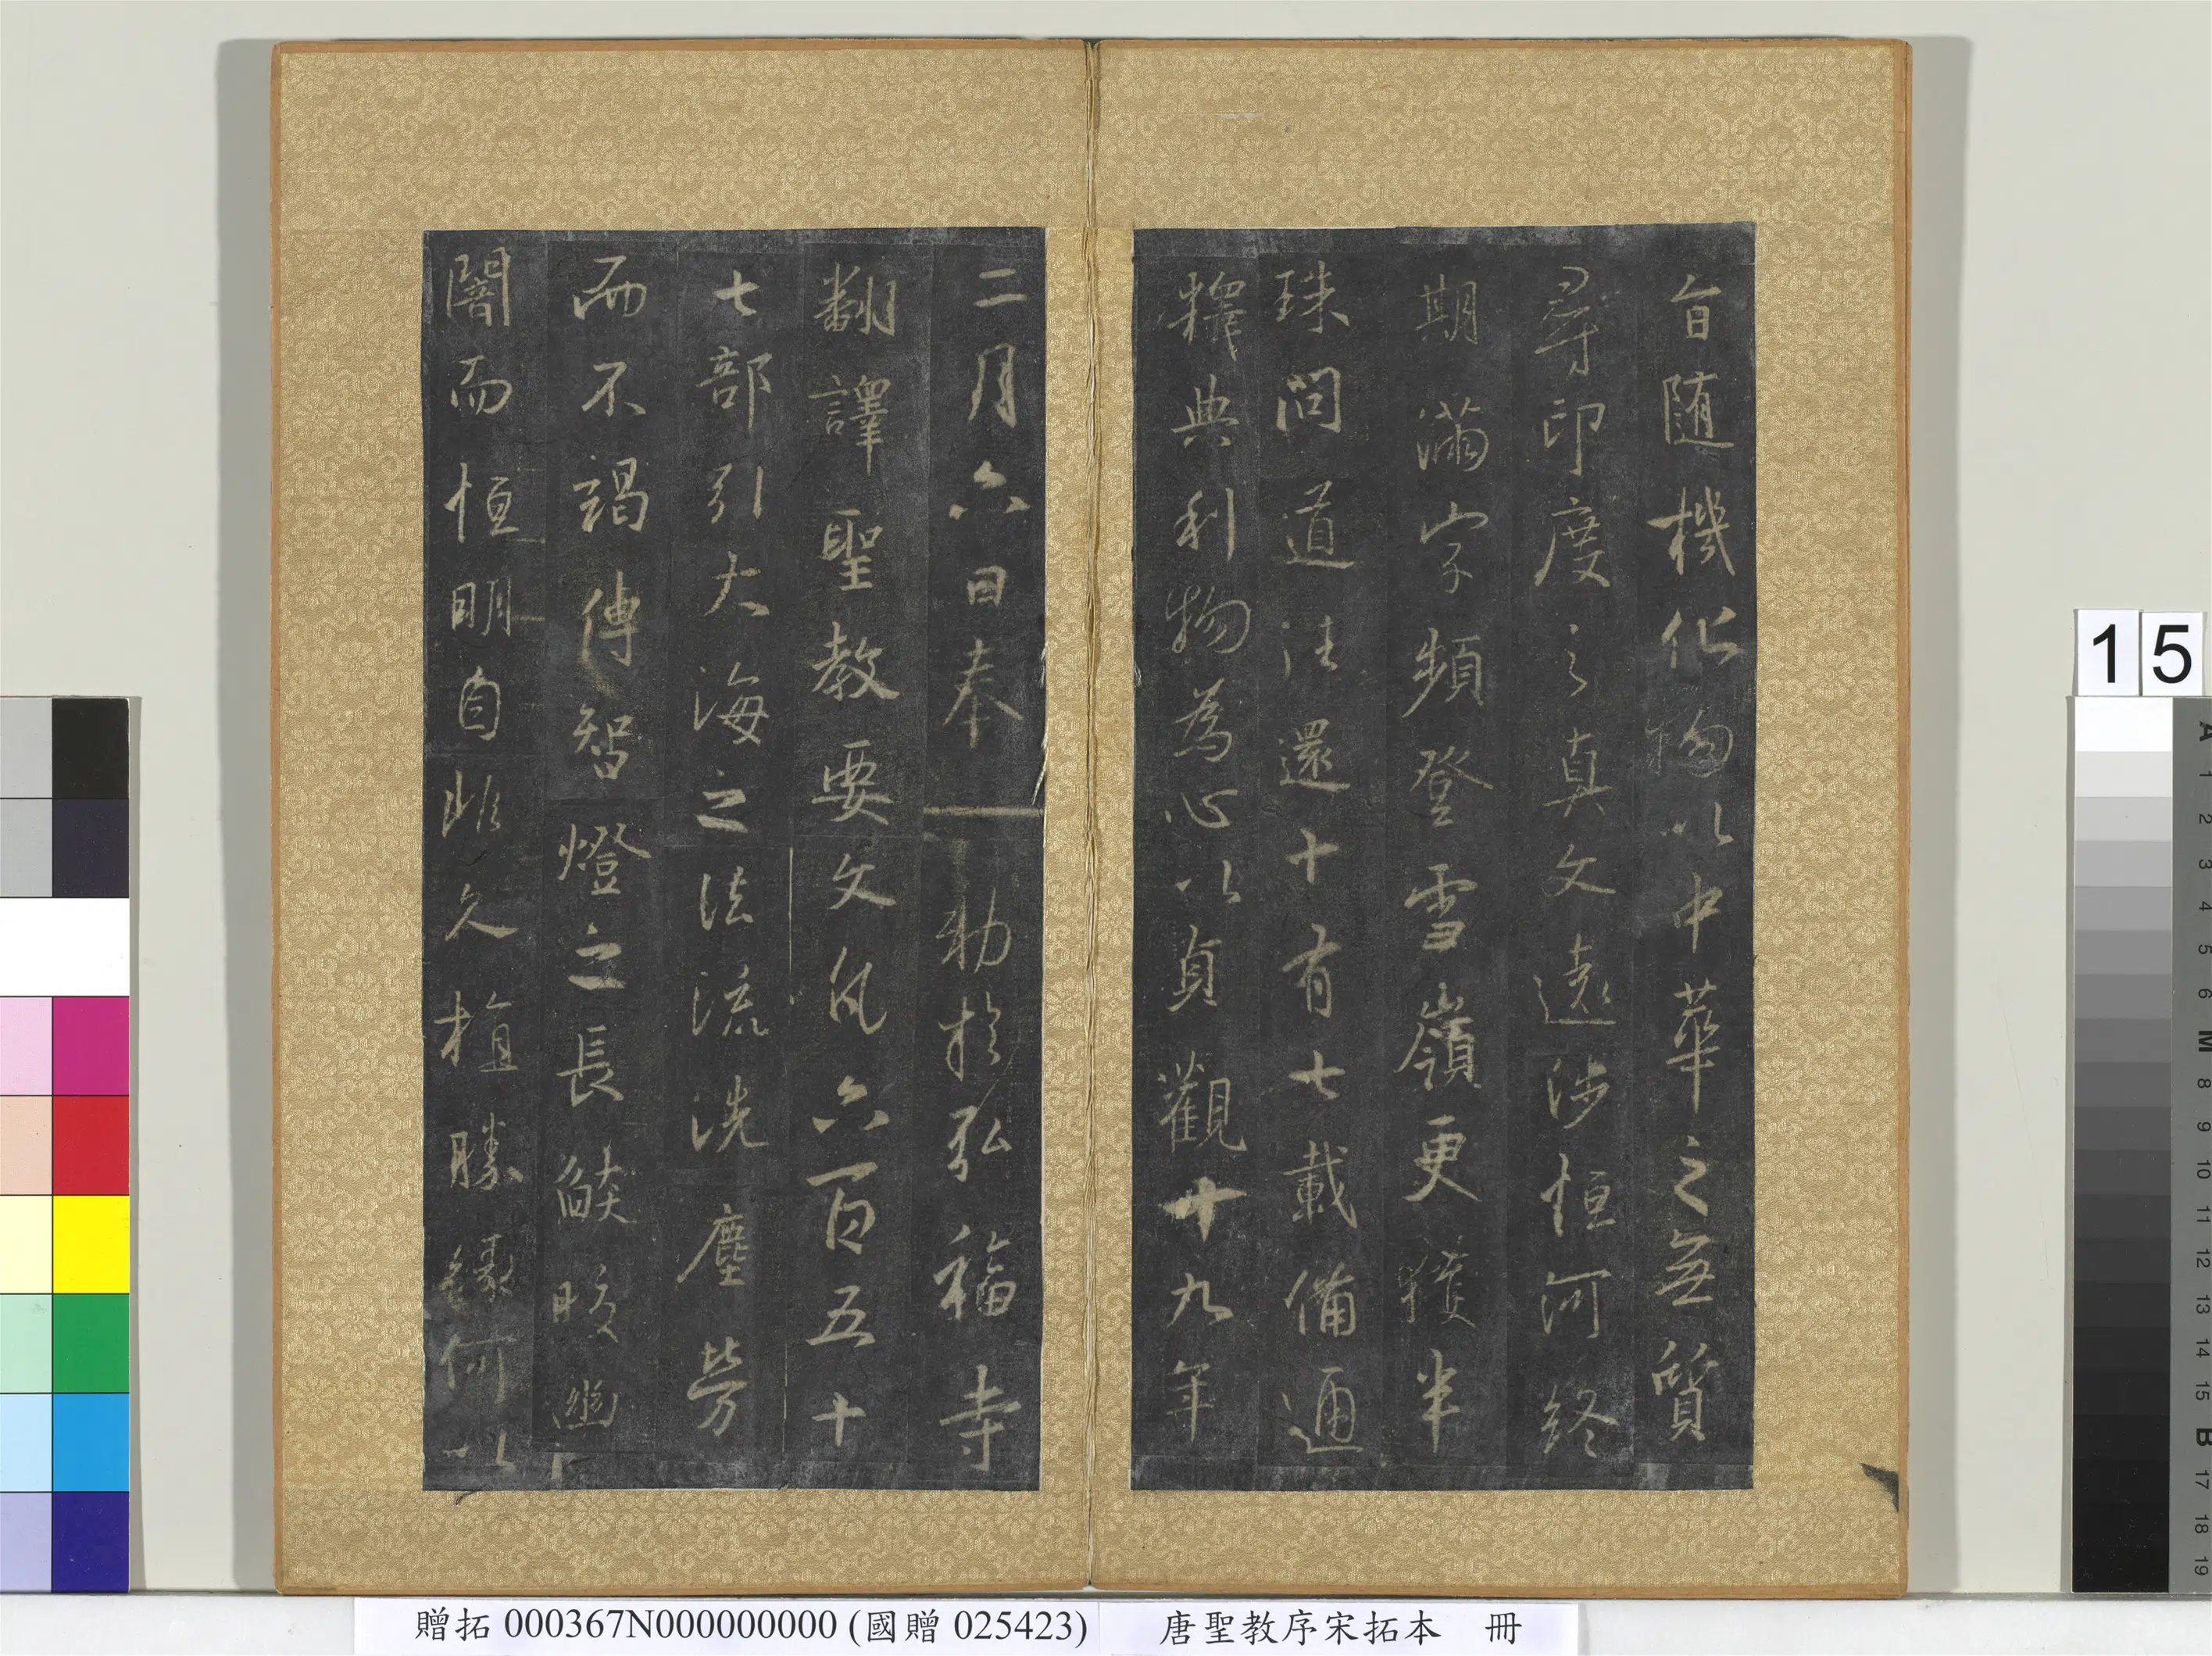 旨随機化物以中華之無質
尋印度之真文遠涉恒河終
期滿字頻登雪嶺更獲半
珠問道法還十有七載備通
釋典利物為心以貞觀十九年
二月六日奉
勅於弘福寺
翻譯聖教要文凡六百五十
七部引大海之法流洗塵勞
而不竭傳智燈之長燄皎幽
闇而恒明自非久植勝緣何以
15
A 1 2 3 4 5 6 M 8 9 10 11 12 13 14 15 B 17 18 19
贈拓 000367N000000000 (國贈 025423) 唐聖教序宋拓本 冊